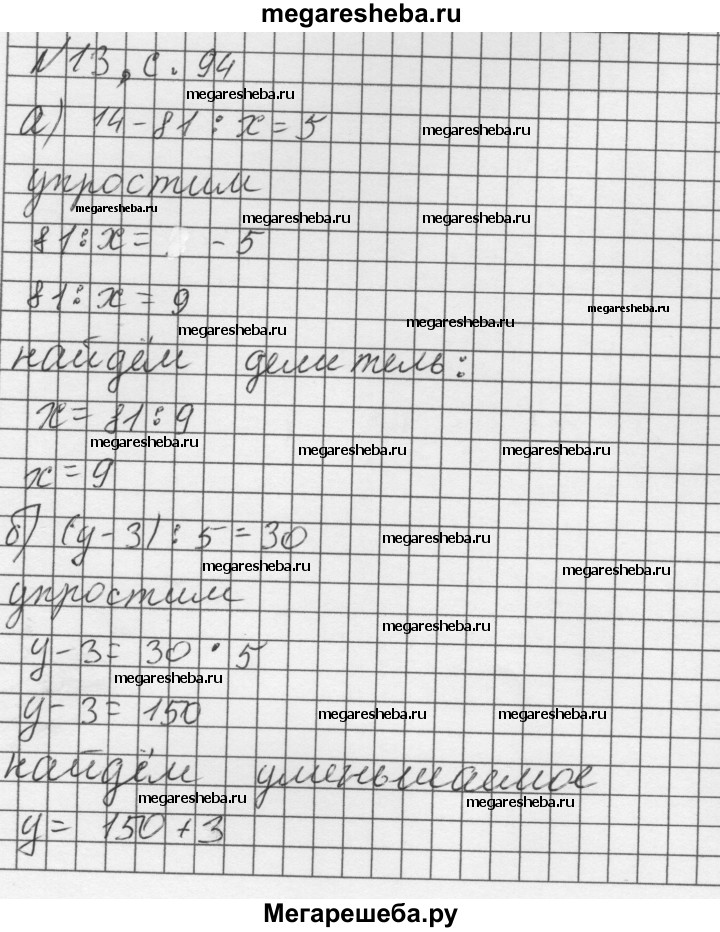 megaresheba.ru
N13, с. 94
megaresheba.ru
а) 14 - 81 : x = 5
megaresheba.ru
упростим
megaresheba.ru
megaresheba.ru
megaresheba.ru
81 : x = - 5
81 : x = 9
megaresheba.ru
megaresheba.ru
megaresheba.ru
найдём делитель:
x = 81 : 9
megaresheba.ru
megaresheba.ru
megaresheba.ru
x = 9
б) (y - 3) : 5 = 30
megaresheba.ru
megaresheba.ru
megaresheba.ru
упростим
megaresheba.ru
y - 3 = 30 · 5
megaresheba.ru
y - 3 = 150
megaresheba.ru
megaresheba.ru
найдём уменьшаемое
megaresheba.ru
megaresheba.ru
y = 150 + 3
Мегарешеба.ру